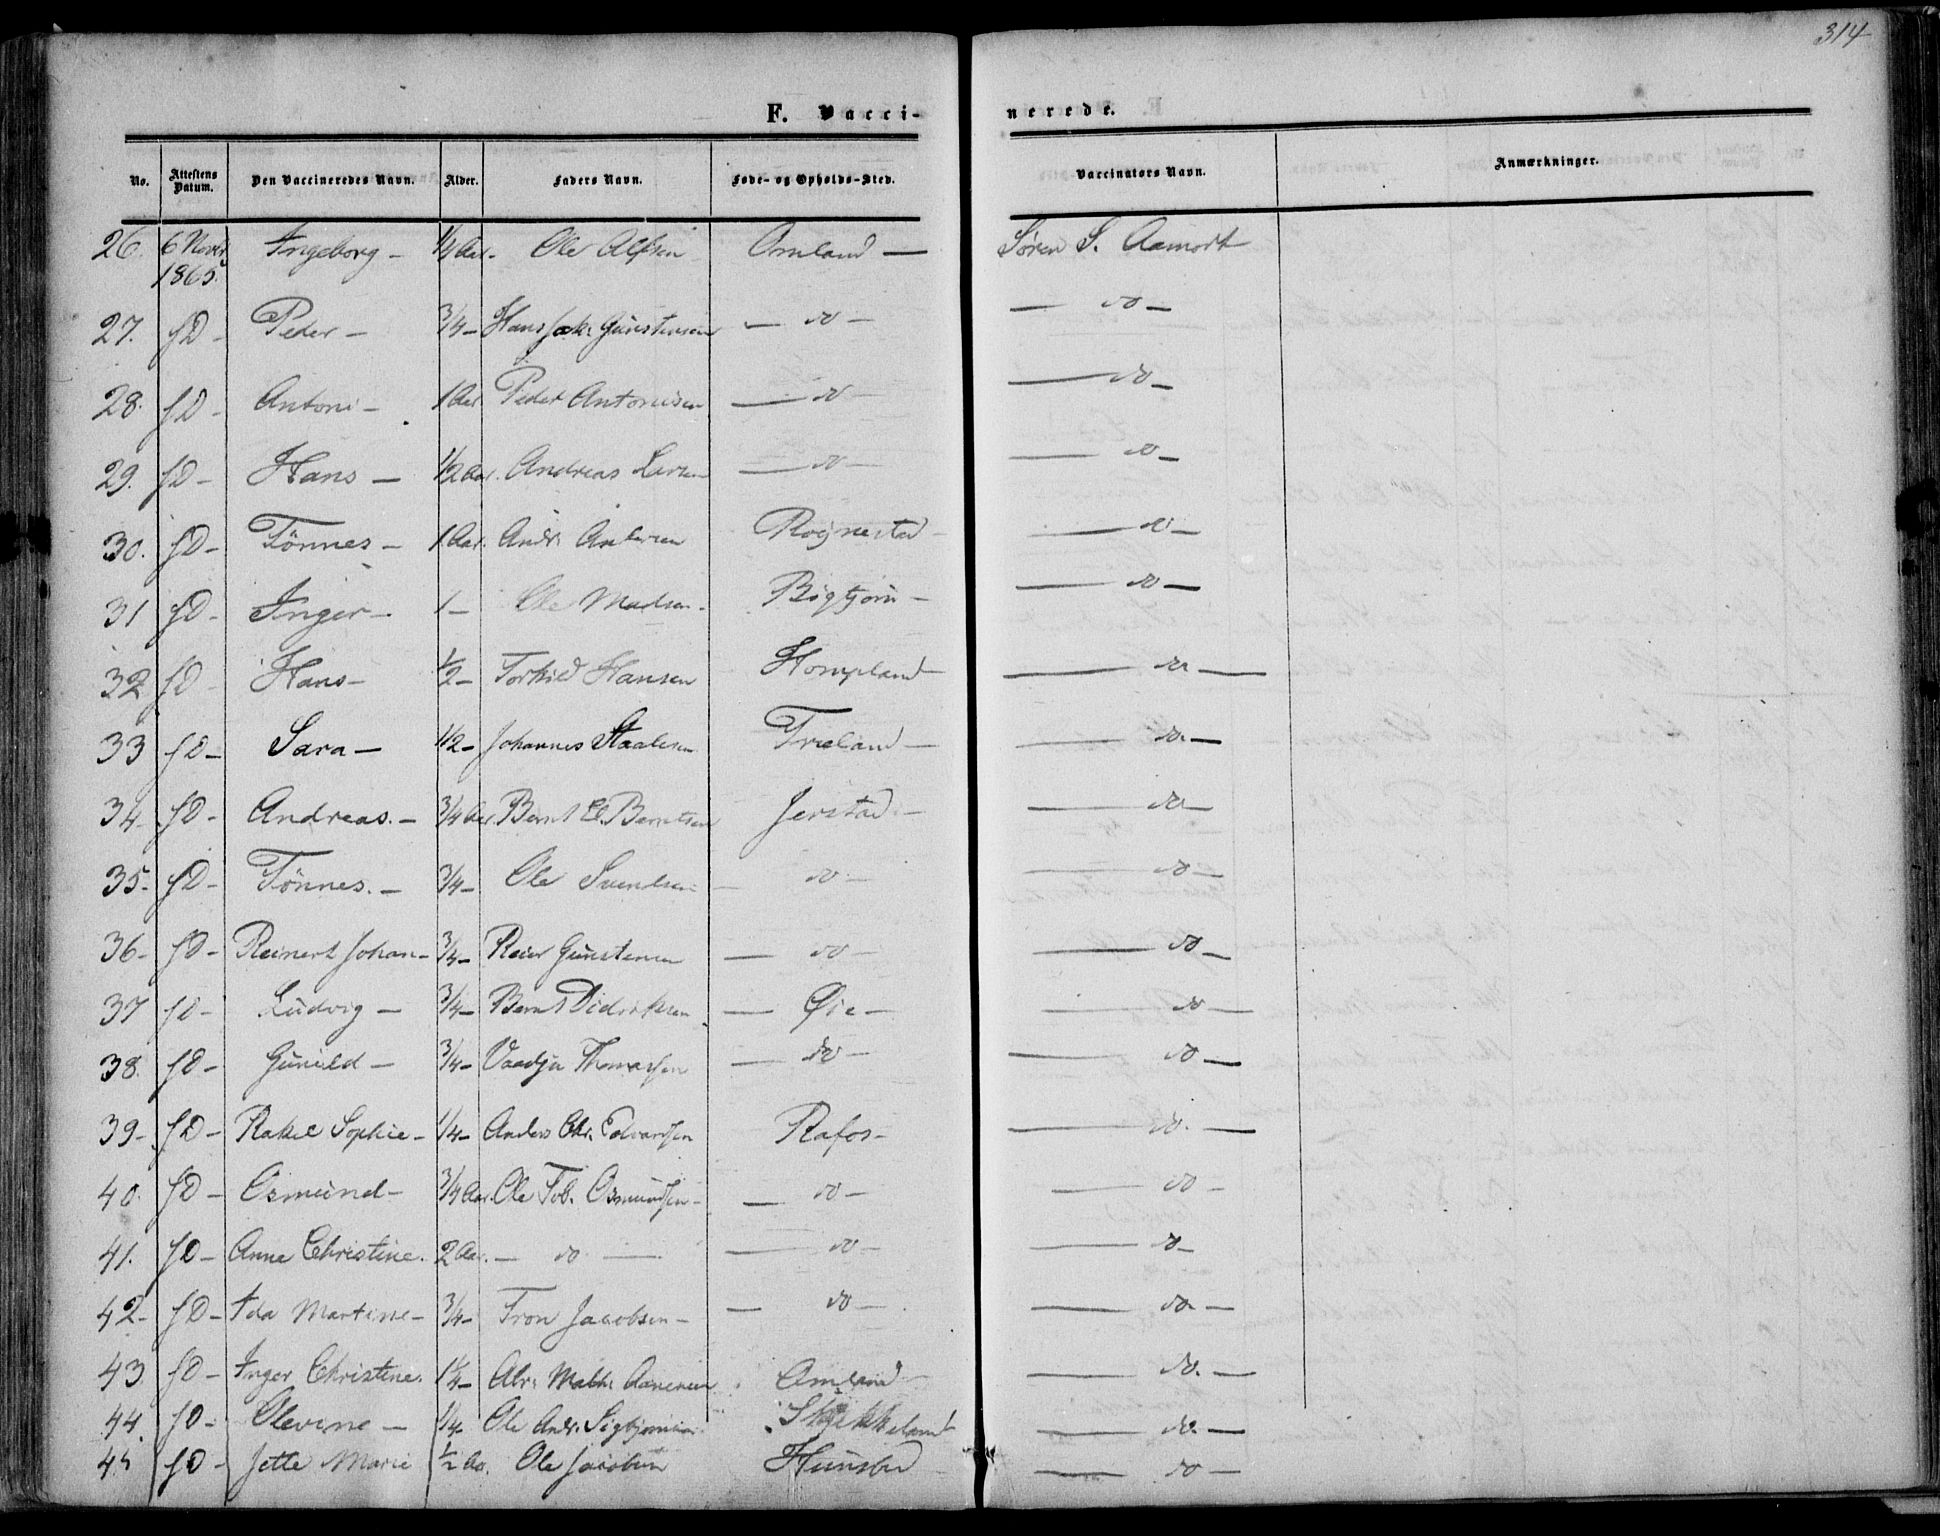 314
F. Vacci-
nerede.
No. Attestens Datum. Den Vaccineredes Navn. Alder. Faders Navn. Føde- og Opholds-Sted. Vaccinators Navn. Anmærkninger.
26. 6 Novbr 1865. Ingeborg - Aar. Ole Alfsen Omland - Søren S. Aamodt
27. sD - Peder - 3/4 - Hans Jak: Gunstensen - do - - do -
28. sD - Antoni - 1 Aar Peder Antonisen - do - - do -
29. sD - Hans - 1/2 Aar. Andreas Larsen - do - - do -
30. sD - Tönnes - 1 Aar. Andr. Andersen Röjnestad - - do -
31 sD - Inger - 1 - Ole Madsen - Bigtjørn - - do -
32 sD - Hans - 1/2 - Torkild Hansen Hompland - - do -
33 sD - Sara - 1/2 - Johannes Staalesen Træland - - do. -
34 sD - Andreas. - 3/4 Aar. Bernt E. Berntsen Jerstad - - do -
35 - sD - Tönnes. - 3/4 - Ole Svendsen - do - - do -
36 - sD - Reinert Johan - 3/4 - Reier Gunstensen - do - - do -
37 sD - Ludvig - 3/4 - Bernt Didriksen - Øie - - do -
38. sD - Gunild - 3/4 - Thomassen - do - - do -
39 - sD - Rakel Sophie - 1/4 - Anders Chr. Edvardsen Rafos - - do. -
40. sD - Osmund - 3/4 Aar. Ole Tob. Osmundsen - - do - - do -
41. sD - Anne Christine. 2 Aar. - do - - do - - do -
42 - sD - Ida Martine - 3/4 - Tron Jacobsen - - do - - do. -
43 sD - Inger Christine. 1/4 - Abr: Math: Aanensen Omland - - do. -
44. sD - Olevine - 1/4 - Ole Andr. Sigbjørnsen - do. -
45 sD - Jette Marie 1/2 Aa. Ole Jacobsen - do -